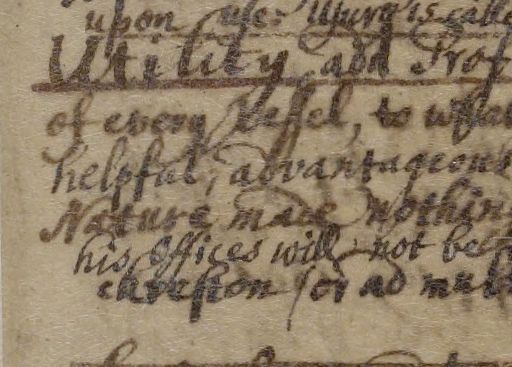 upon use: Usura is calle
Utility and Prof
of every Vessel, to what
helpful, advantageous
Nature made nothing
his Offices will not be
(or ad mul